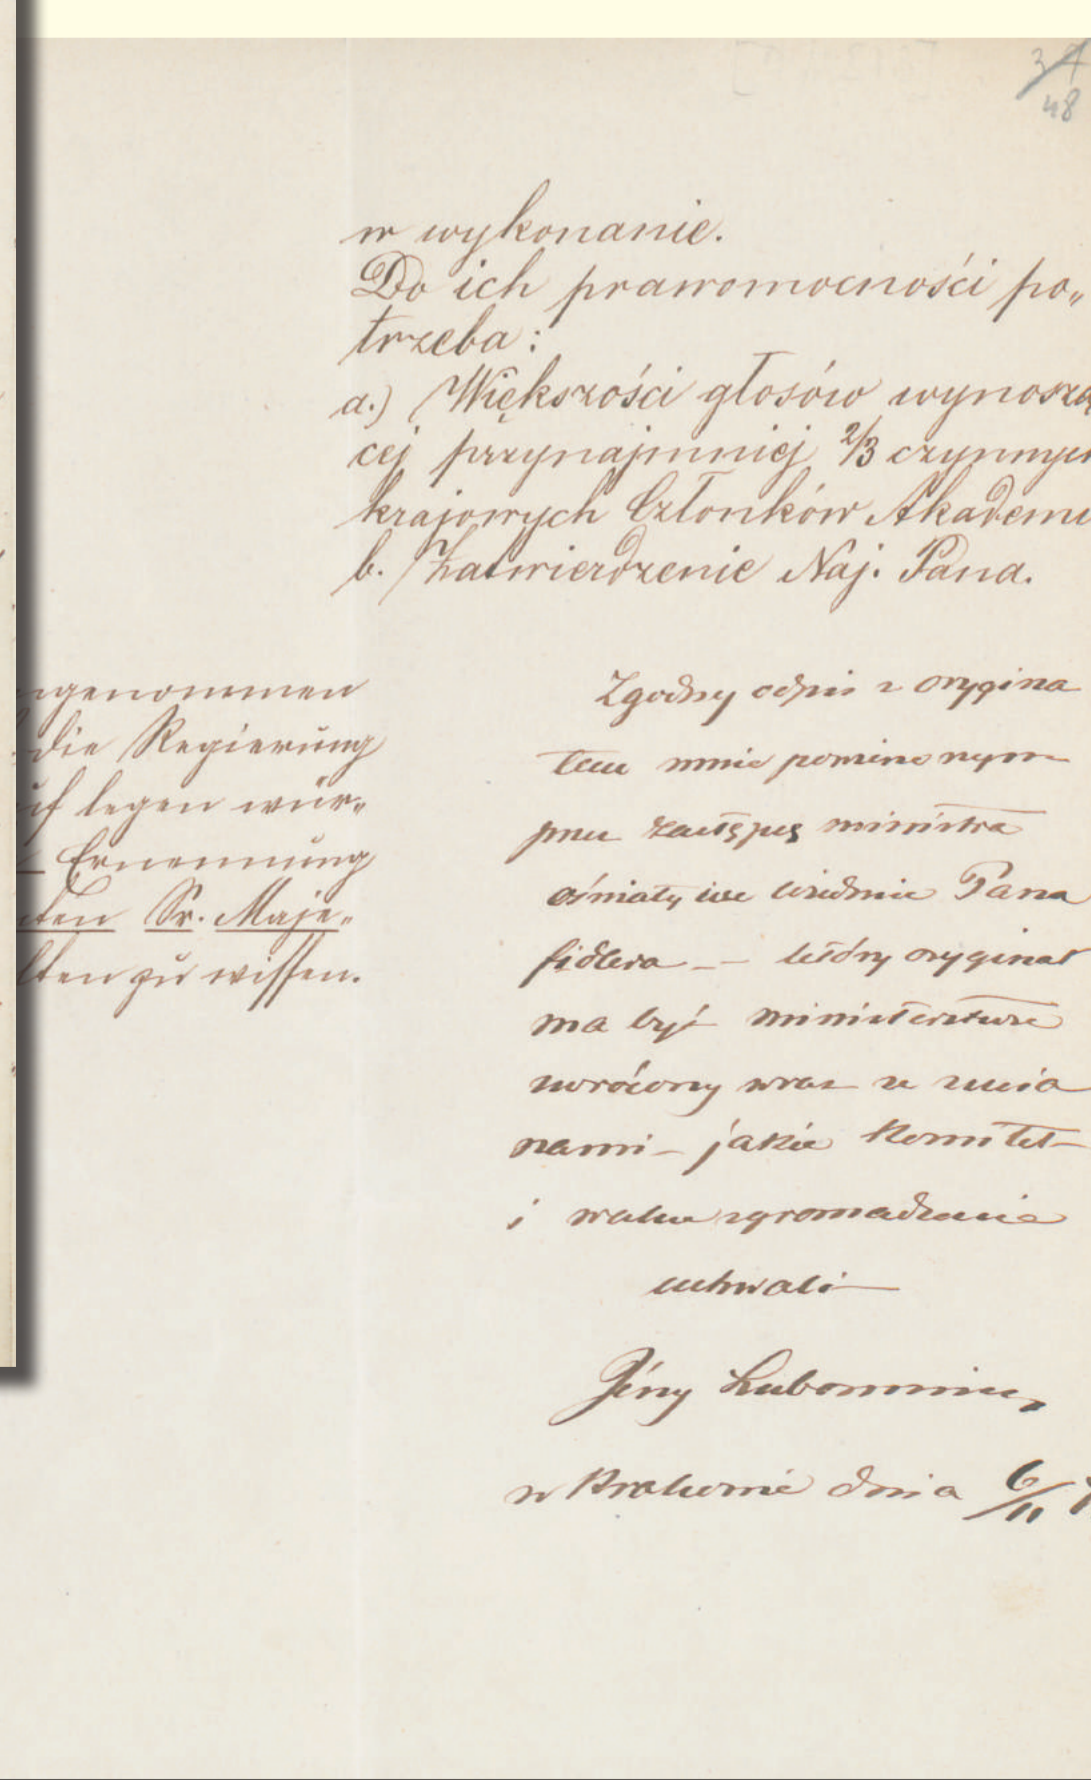 37
48
w wykonanie.
Do ich prawomocności po„
trzeba:
a.) Większości głosów wynoszą
cej przynajmniej 2/3 czynnych
krajowych Członków Akademi
b. Zatwierdzenie Naj. Pana.
ngenommen
die Regierung
uf legen wür„
Ernennung
ten Sr. Maje„
lten zu wissen.
Zgodny odpis z orygina
łem mnie
przez zastępcę ministra
oświaty we Wiedniu Pana
Fidlera — który oryginał
ma być ministerstwu
zwrócony wraz ze zmia
nami — jakie Komitet
i walne zgromadzenie
uchwali —
Jerzy Lubomirski
w Krakowie dnia 6/11